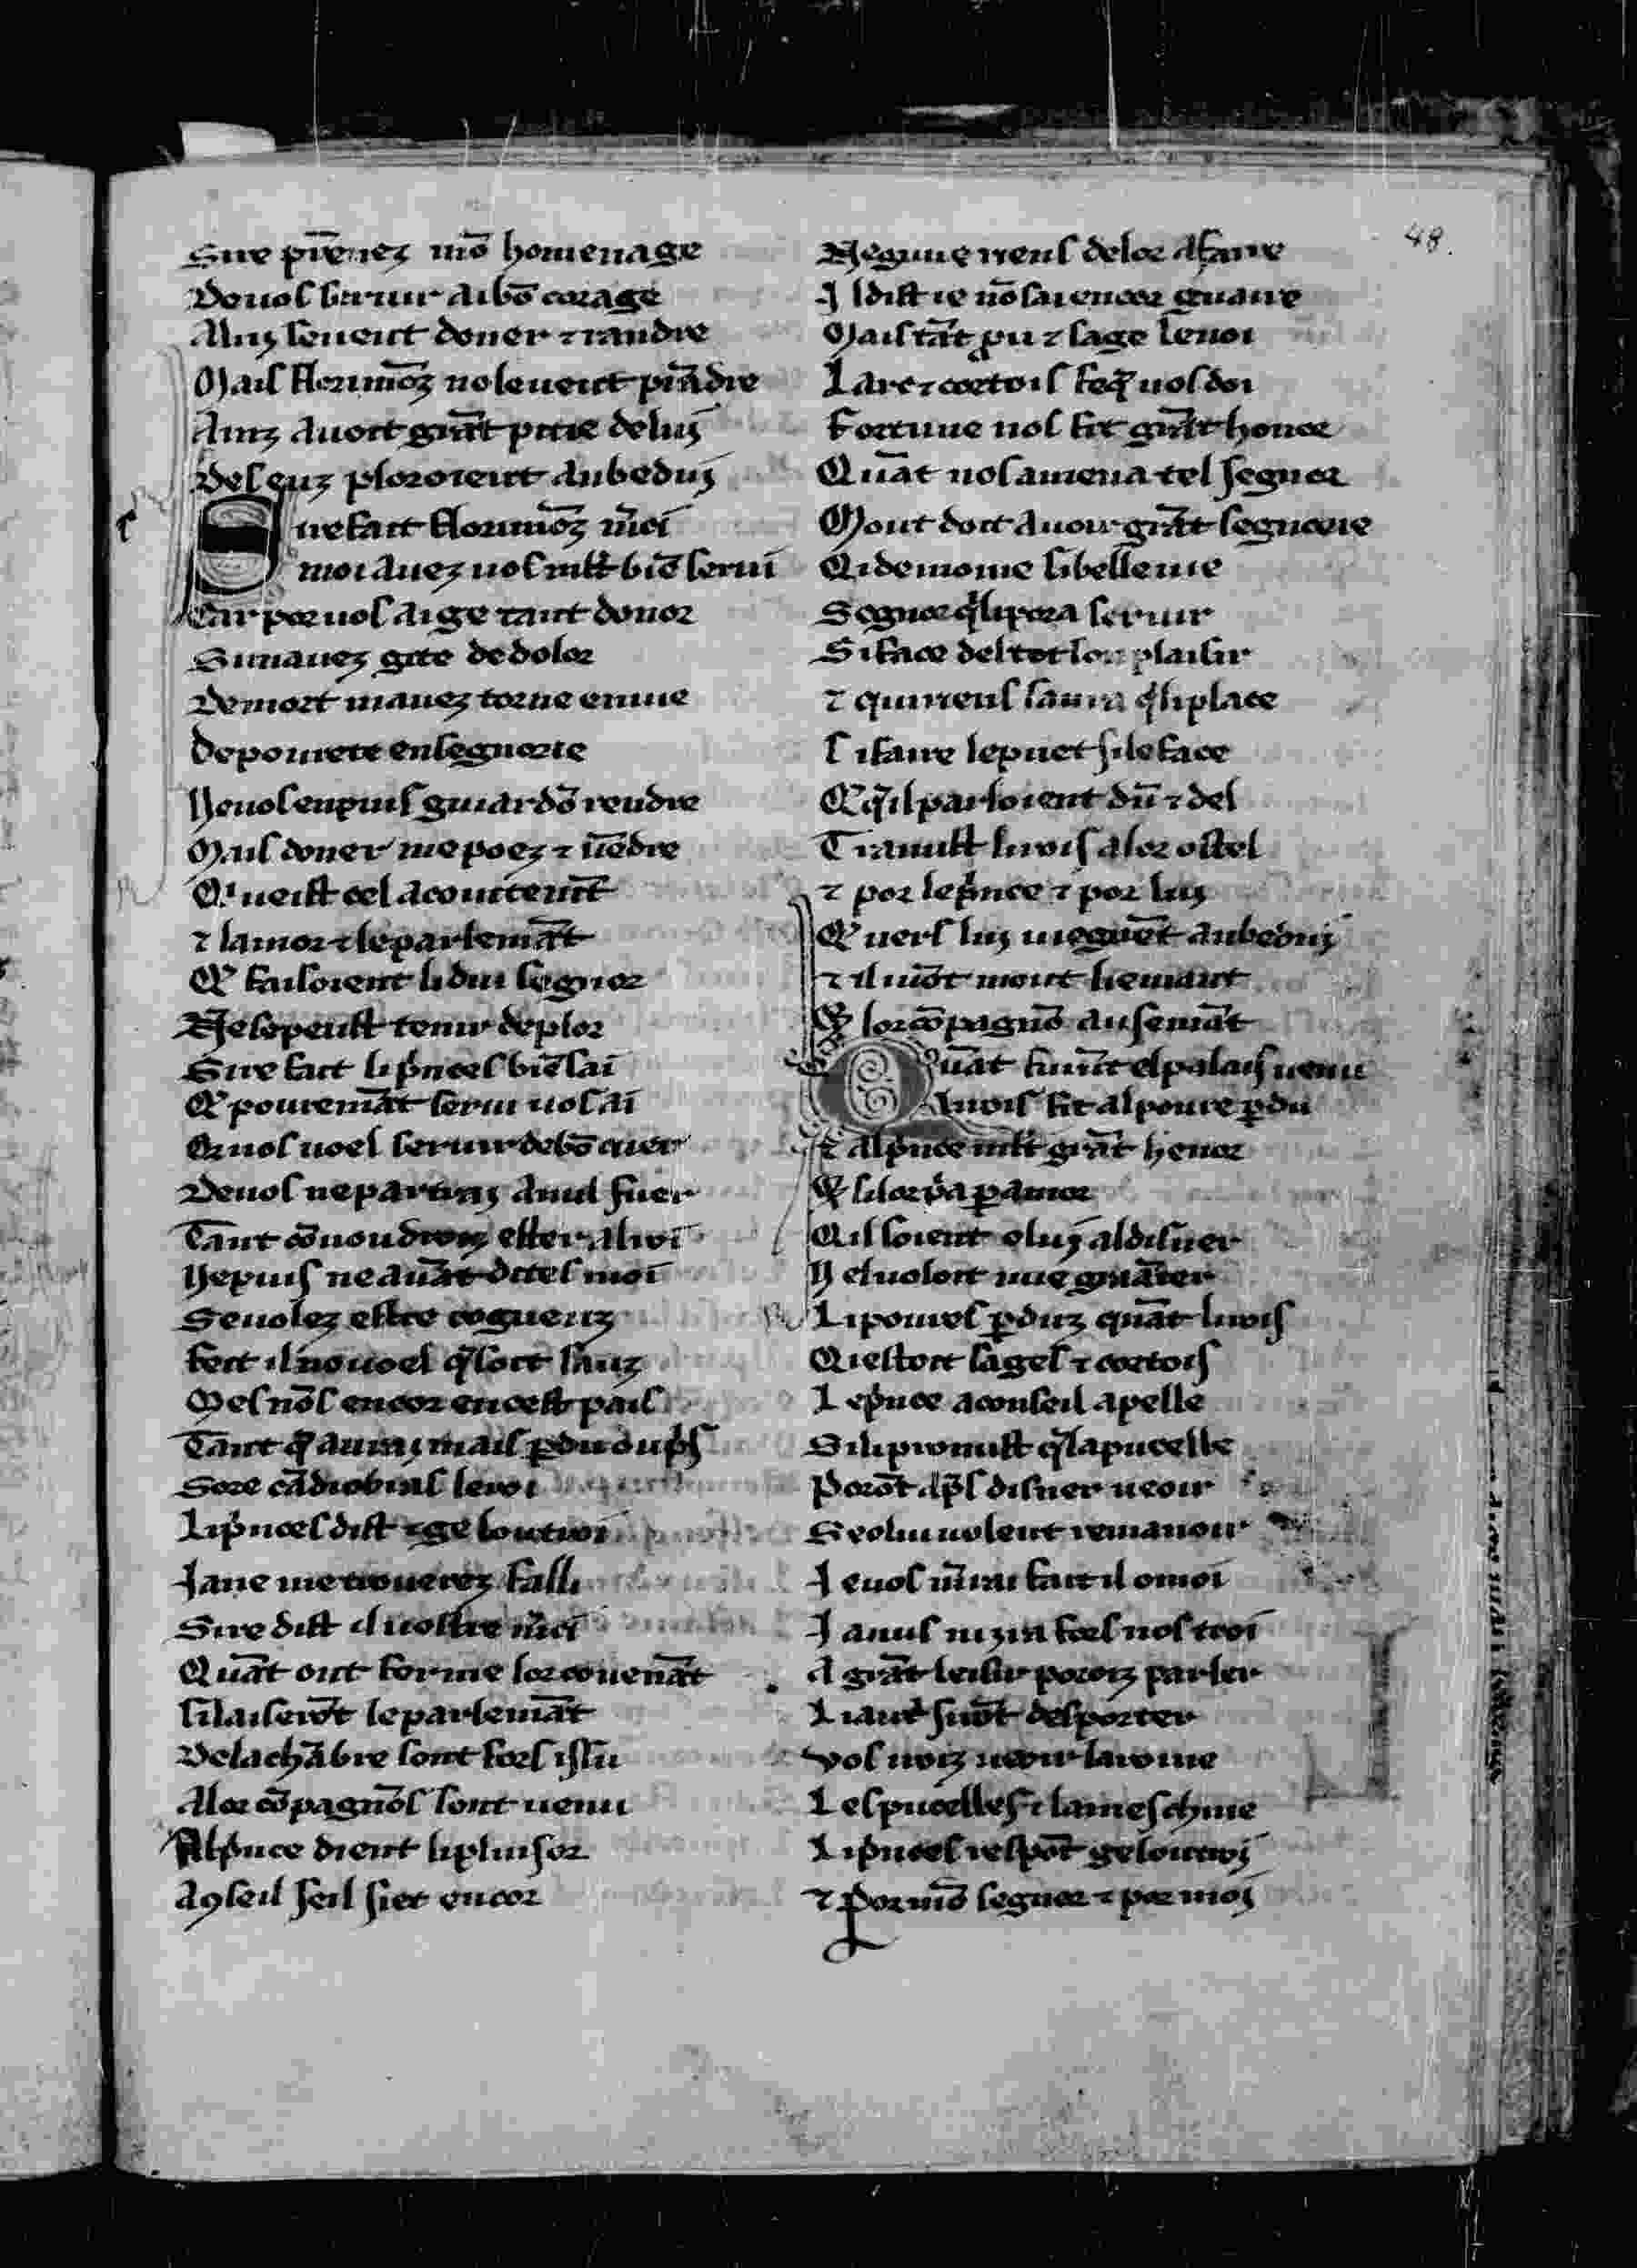 Sire pͬenez mō homenage
De uos seruir ai bō corage
Aluy se ueut doner ⁊ randre
Mais florimōz no le ueut prādre
Ainz auoit grāt pitie de luy
Des euz ploroient anbeduy
Sire fait florimōz m̄ci
moi auez uos mlt biē serui
Car por uos ai ge tant donor
Si mauez gite de dolor
De mort mauez torne en uie
De pourete en segnorie
Ne uos en puis guiardō rendre
Mais doner me poez ⁊ uēdre
Qi ueist cel acointemāt
⁊ lamor ⁊ le parlemāt
Qe faisoient li dui segnor
Ne se peust tenir de plor
Sire fait li pͥnces biē sai
Qe pouremāt serui uos ai
Or uos uoel seruir de bō cuer
De uos ne partiray a nul fuer
Tant cō uoudroiz ester a moi
Ne puis ne auāt dites moi
Se uolez estre cogneuz
Fet il no uoel qͤ soit sauz
Mes nōs encor en cest pais
Tant qͤ auray mais ꝑdu o pͥs
Sore cādiobras le roi
Li pͥnces dist ⁊ ge lou troi
Ja ne me trouerez falli
Sire dist il uostre m̄ci
Quāt ont ferme lor couenāt
Si laiserōt le parlemāt
De la chābre sont fors issu
A lor cōpagnōs sont uenu
Al pͥnce dient li plusor
A ꝯseil seil siet encor
48.
Ne gaire rens de lor afaire
Il dist ie nō sai encor guaire
Mais tāt pͣu ⁊ sage le uoi
Larc ⁊ cortois fe qͤ uos doi
Fortune nos fit grāt honor
Quāt nos amena tel segnor
Mout doit auoir grāt segnorie
Qi demoine si belle uie
Segnor qͥ li pora seruir
Si face del tot son plaisir
⁊ qui rens saura qͥ li place
Si faire le puet si le face
Qe qͥl parloient dū ⁊ del
Tramist li rois a lor ostel
⁊ por le pͥnce ⁊ por luy
Qe uers luy uiegnēt anbeduy
⁊ il uōt mout liemant
Qe lor cōpagnō ausemāt
Quāt furēt el palais uenu
Li rois fit al poure ꝑdu
⁊ al pͥnce mlt grāt henor
Qe si lor pͥa ꝑ amor
Qil soient o luy al disner
Nel uoloit mie graāter
Li poures ꝑduz quāt li rois
Qi estoit sages ⁊ cortois
Le pͥnce a conseil apelle
Si li promist qͤ la pucelle
Porōt apͤs disner ueoir
Se o lui uolent remanoir
Je uos m̄rai fait il o moi
A grāt leisir poroiz parler
Li autͥ sirōt desporter
Vos uoiz ueoir la roine
Les pucelles ⁊ la meschine
Li pͥnces respōt ge lou troy
⁊ por mō segnor ⁊ por moy